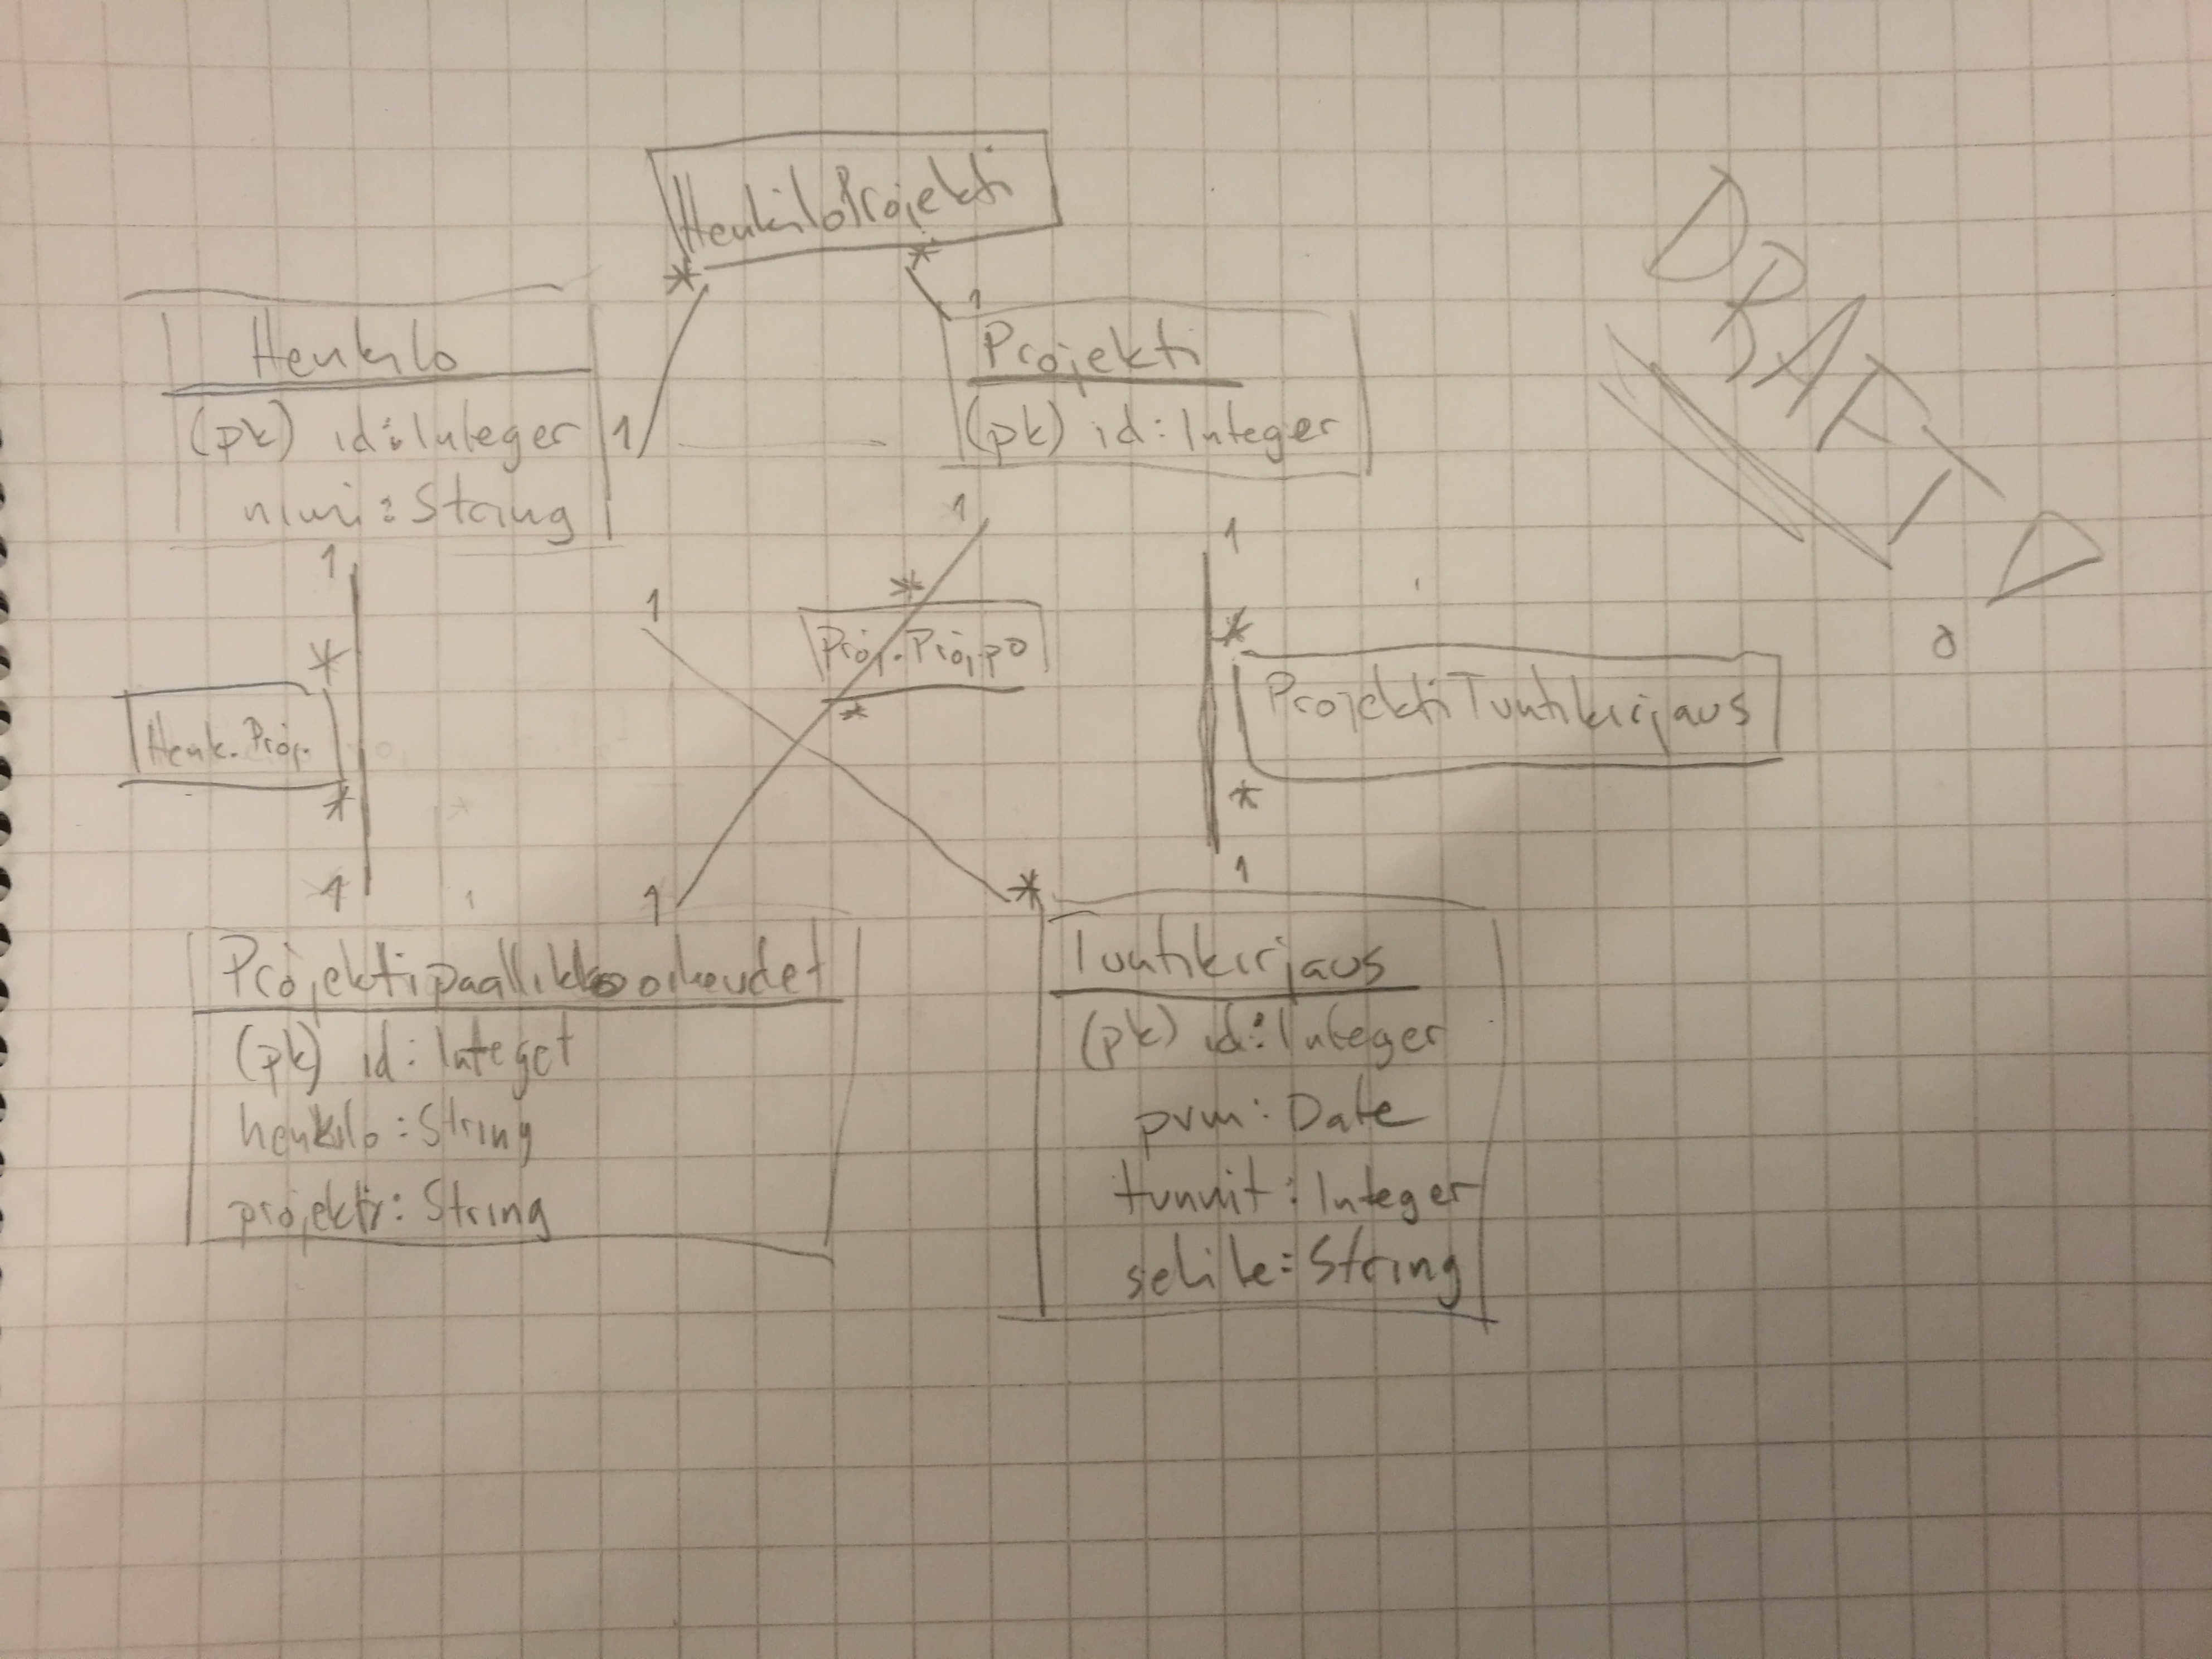 HenkiloProjekti
* *
1
Henkilo
(pk) id:Integer
nimi:String
1
Projekti
(pk) id:Integer
DRAFT
1
*
Henk. Proj.
*
1
1
1
*
Proj. Proj.po
*
1
1
*
ProjektiTuntikirjaus
*
1
*
Projektipaallikkooikeudet
(pk) id: Integet
henkilo:String
projekti: String
Tuntikirjaus
(pk) id:Integer
pvm: Date
tunnit: Integer
selite:String